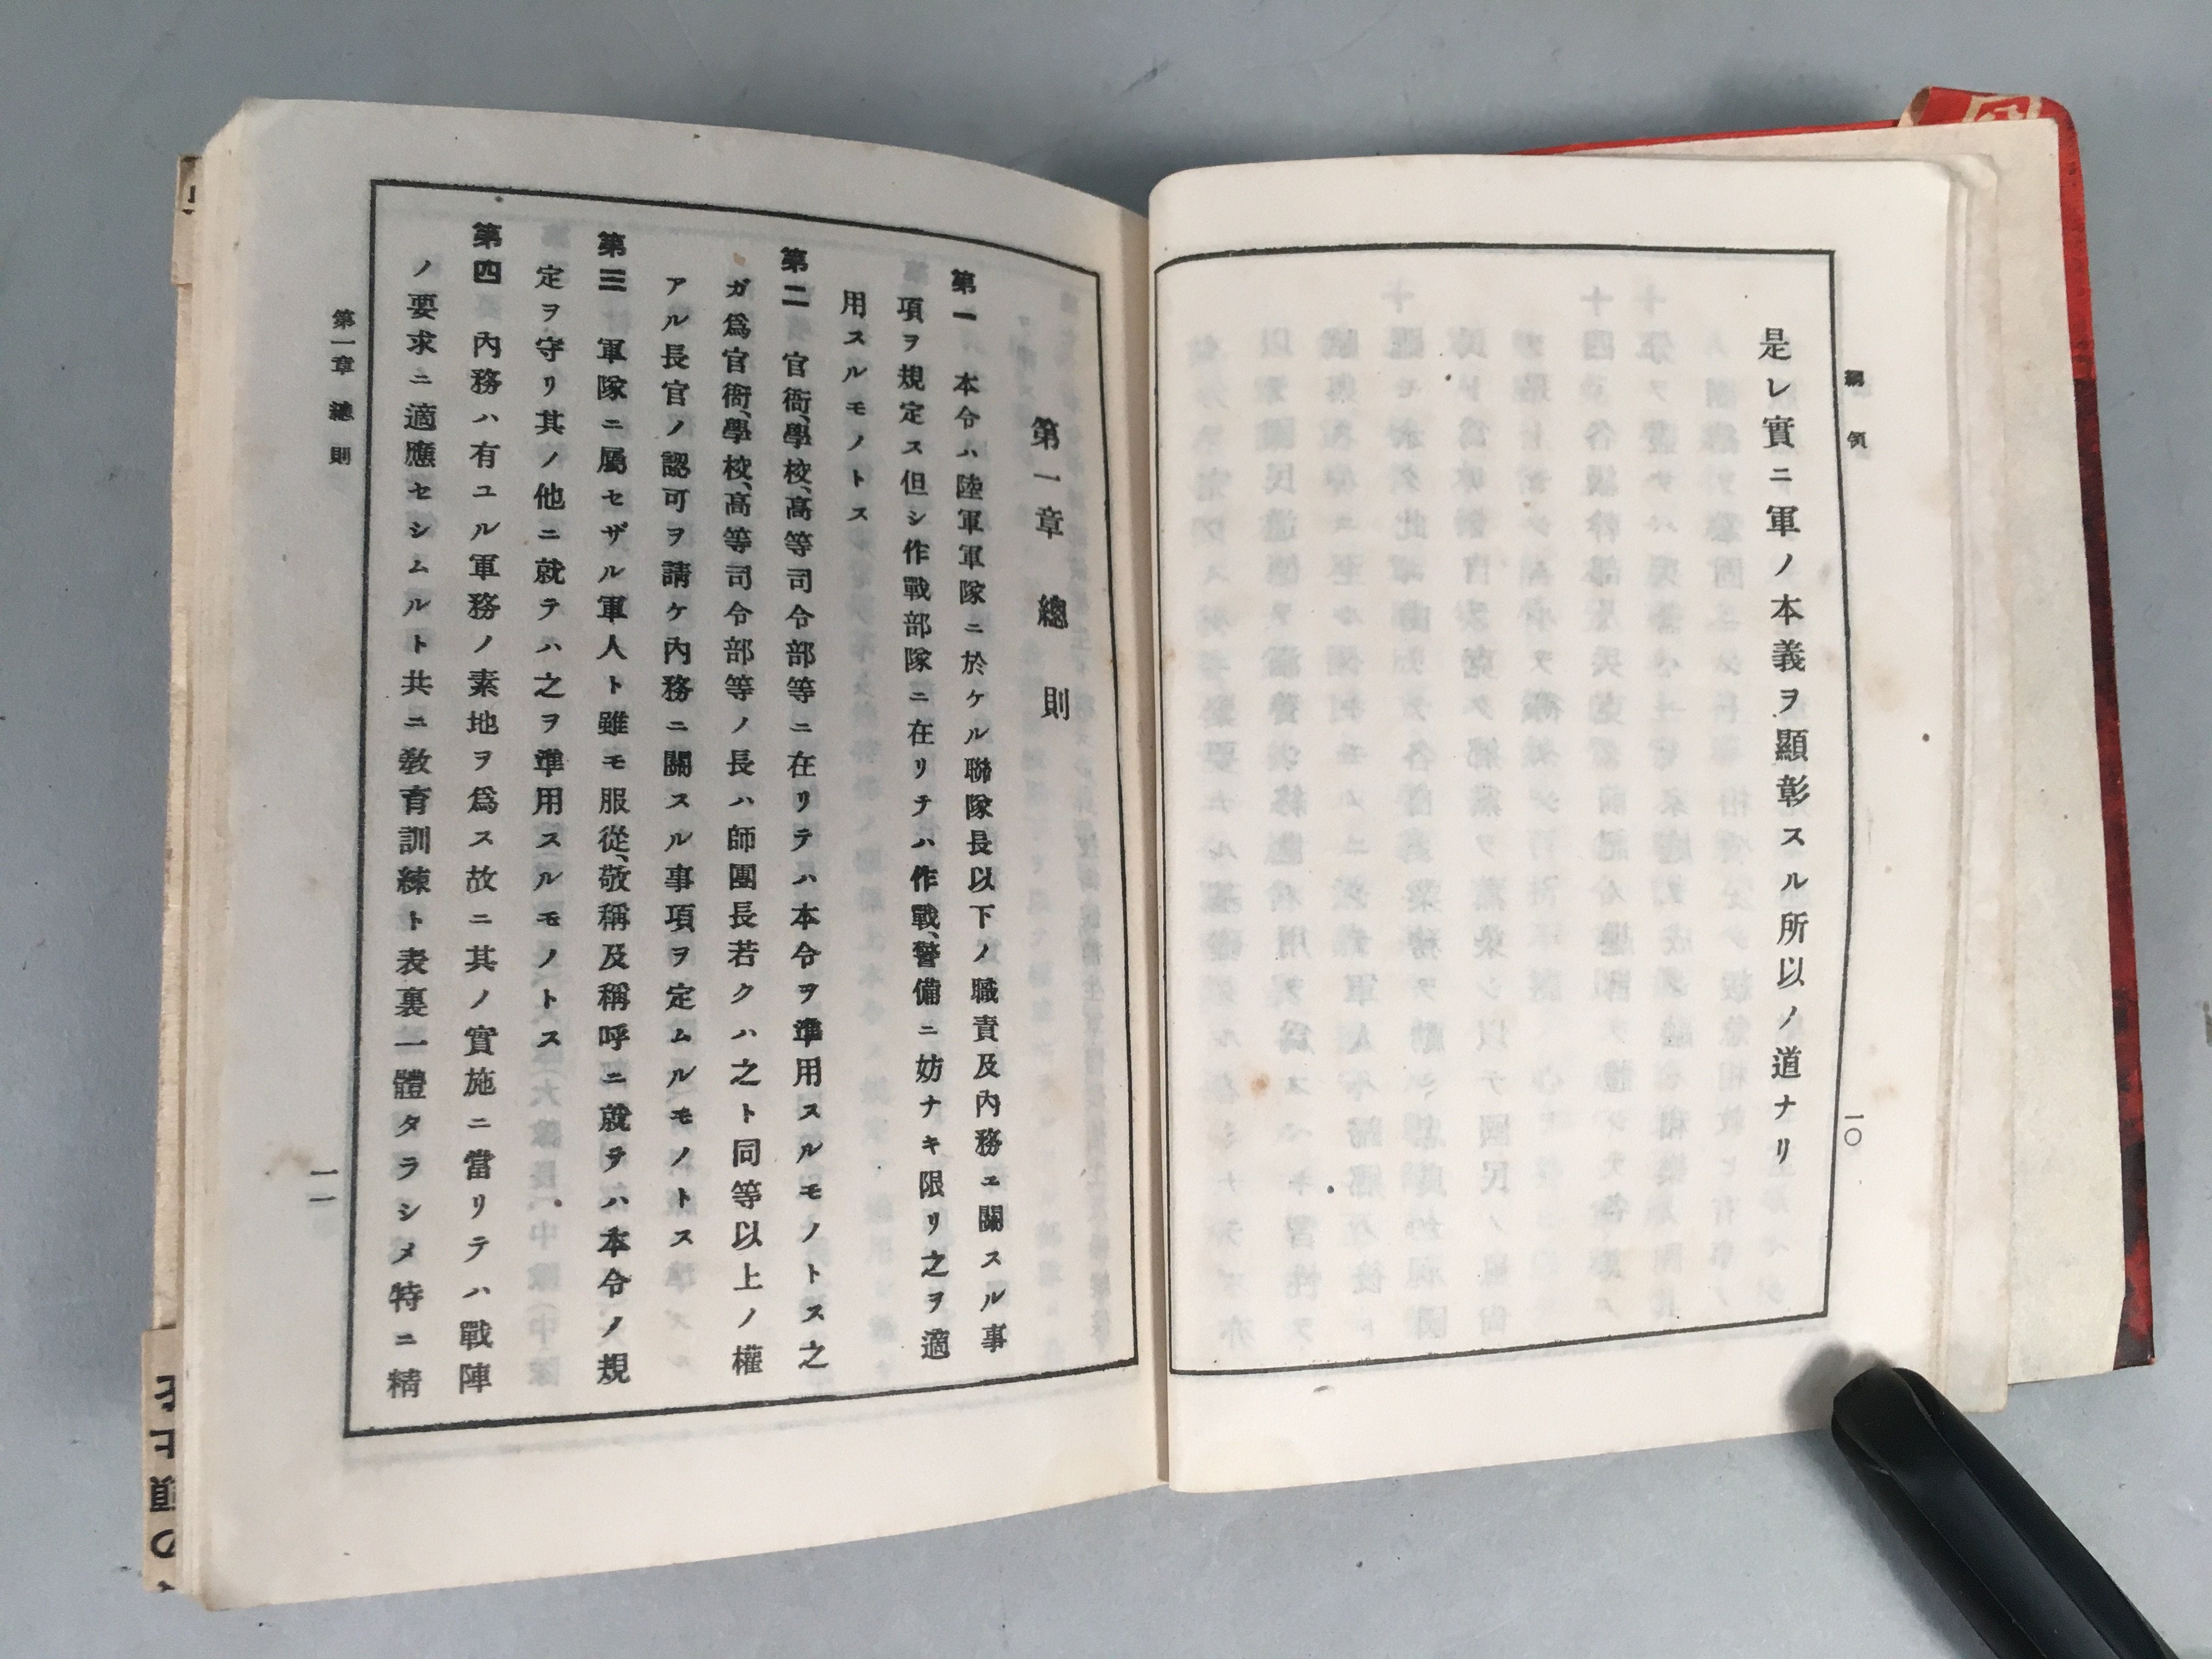 綱領
一〇
是レ實ニ軍ノ本義ヲ顯彰スル所以ノ道ナリ
第一章 總則
第一 本令ハ陸軍軍隊ニ於ケル聯隊長以下ノ職責及內務ニ關スル事
項ヲ規定ス但シ作戰部隊ニ在リテハ作戰、警備ニ妨ナキ限リ之ヲ適
用スルモノトス
第二 官衙、學校、高等司令部等ニ在リテハ本令ヲ準用スルモノトス之
ガ爲官衙、學校、高等司令部等ノ長ハ師團長若クハ之ト同等以上ノ權
アル長官ノ認可ヲ請ケ內務ニ關スル事項ヲ定ムルモノトス
第三 軍隊ニ屬セザル軍人ト雖モ服從、敬稱及稱呼ニ就ヲハ本令ノ規
定ヲ守リ其ノ他ニ就テハ之ヲ準用スルモノトス
第四 內務ハ有ユル軍務ノ素地ヲ爲ス故ニ其ノ實施ニ當リテハ戰陣
ノ要求ニ適應セシムルト共ニ敎育訓練ト表裏一體タラシメ特ニ精
第一章 總則
一一